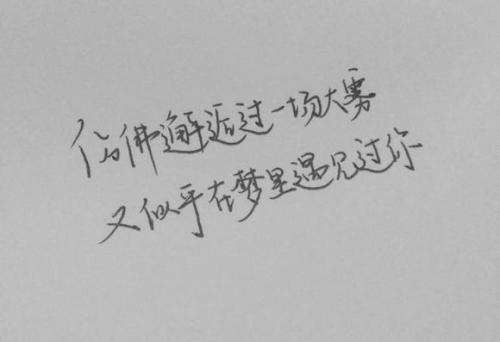 仿佛邂逅过一场大雾
又似乎在梦里遇见过你